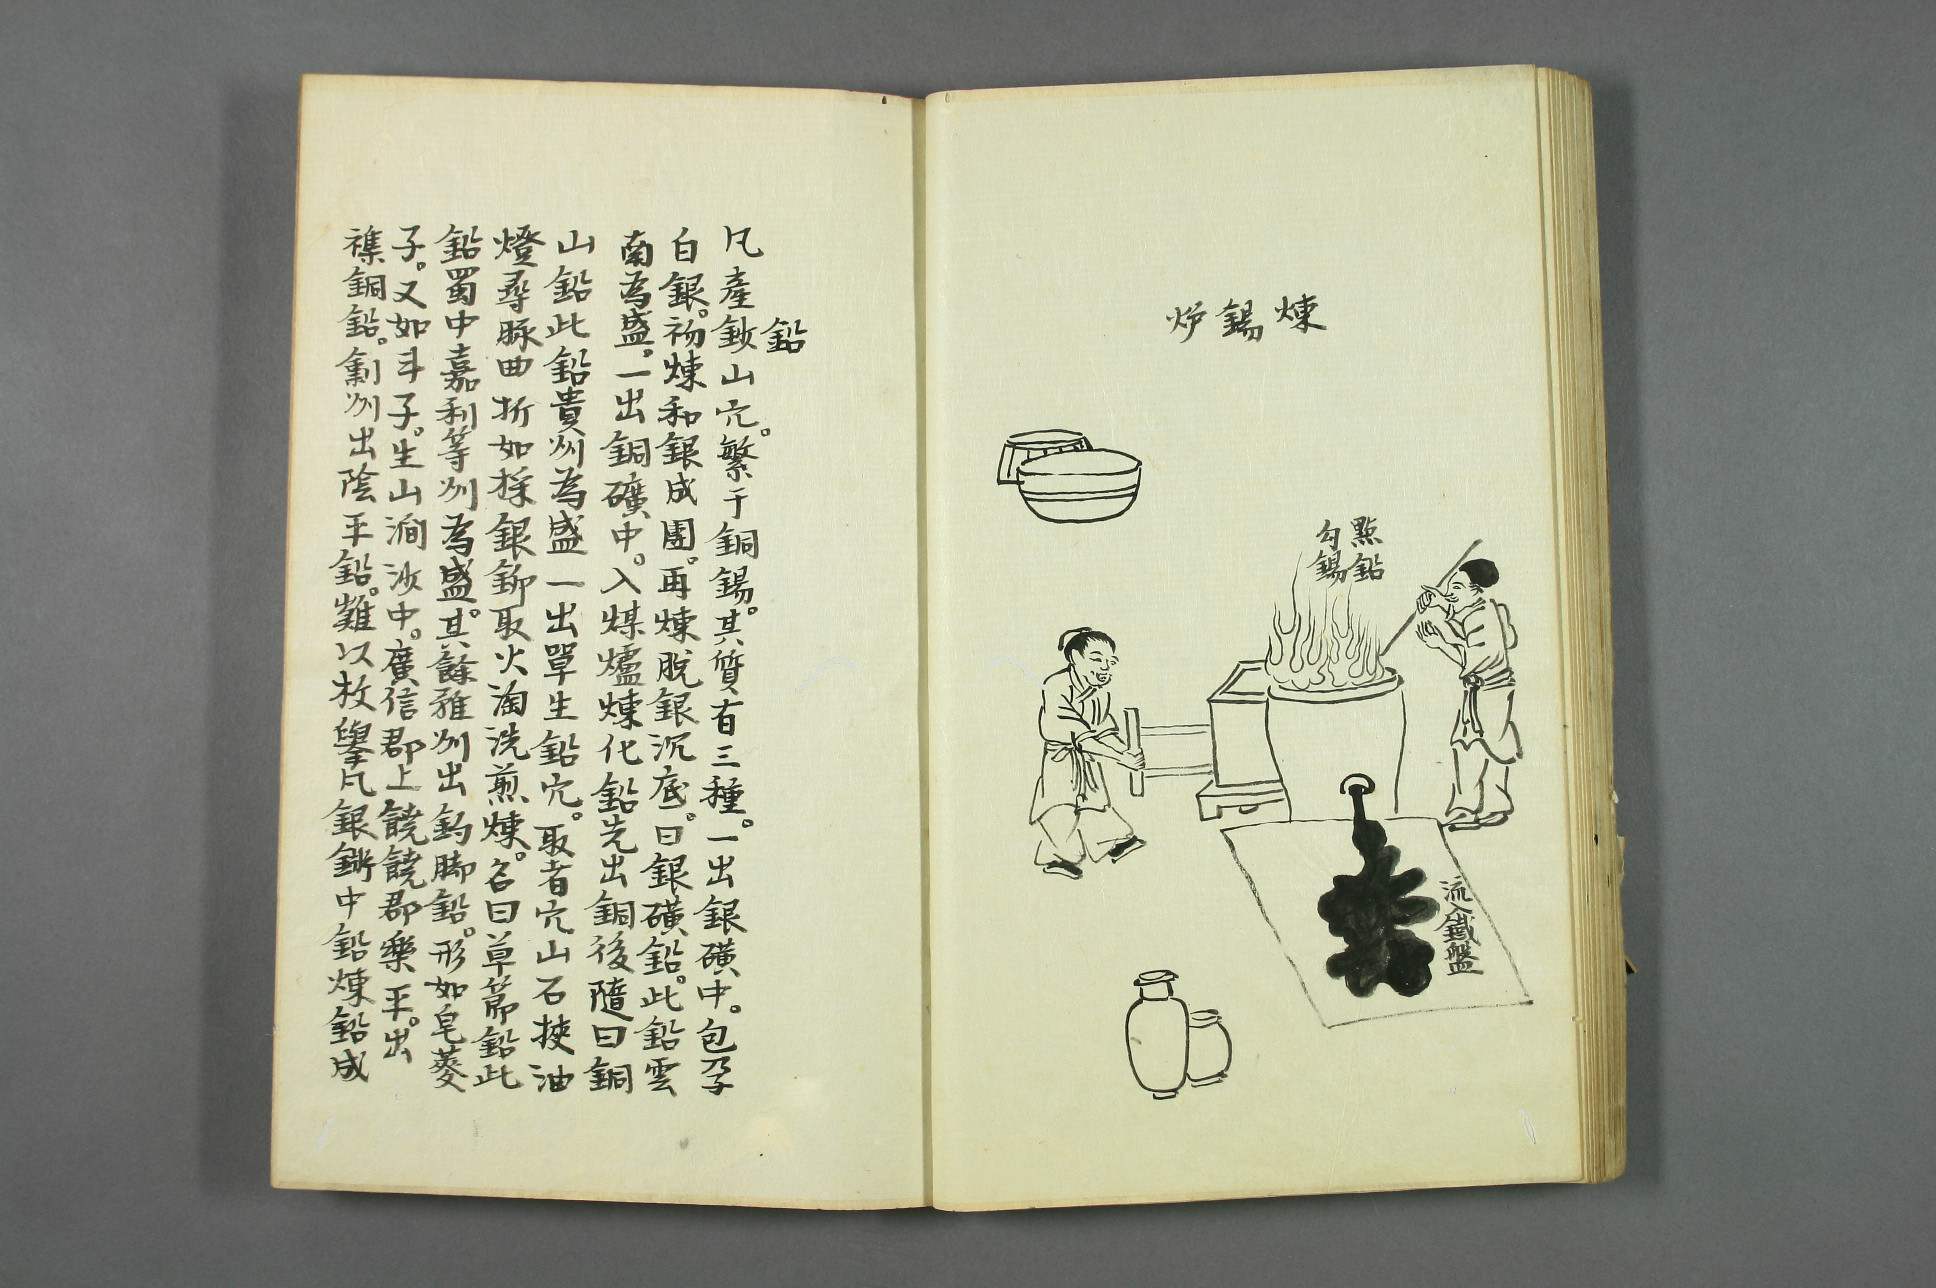 煉錫炉
點鉛
勾錫
流入鐵盤
鉛
凡產鈆山穴。繁于銅錫。其質有三種。一出銀礦中。包孕
白銀。初煉和銀成團。再煉脫銀沉底。曰銀礦鉛。此鉛雲
南為盛。一出銅礦中。入煤爐煉化鉛先出銅後隨曰銅
山鉛此鉛貴州為盛一出單生鉛穴。取者穴山石挾油
燈尋脉曲折如採銀鉚取火淘洗煎煉。名曰草節鉛此
鉛蜀中嘉利等州為盛。其餘雅州出釣脚鉛。形如皂莢
子。又如斗子。生山澗沙中。廣信郡上饒饒郡樂平。出
襍銅鉛。劍州出陰平鉛。難以枚擧凡銀鉚中鉛煉鉛成